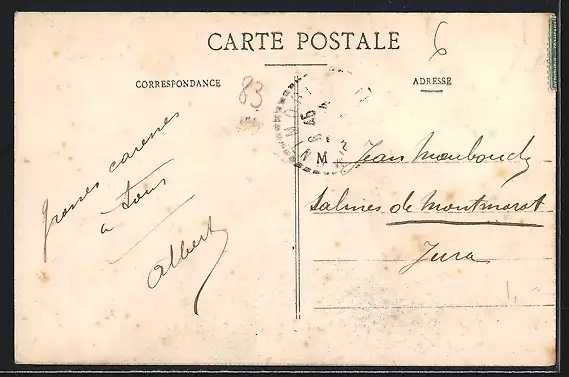 CARTE POSTALE
6
CORRESPONDANCE
83
ADRESSE
grosses caresses
à tous
Albert
M. Jean
Salines de Montmorot
Jura